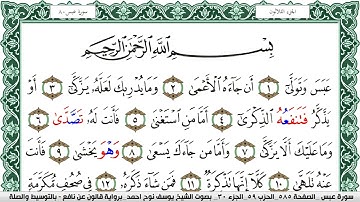 الجزء الثلاثون
سورة عبس ٨٠
بِسْمِ اللَّهِ الرَّحْمَٰنِ الرَّحِيمِ
عَبَسَ وَتَوَلَّىٰٓ ١ أَن جَآءَهُ الْأَعْمَىٰ ٢ وَمَا يُدْرِيكَ لَعَلَّهُ يَزَّكَّىٰٓ ٣ أَوْ
يَذَّكَّرُ فَتَنفَعُهُ الذِّكْرَىٰٓ ٤ أَمَّا مَنِ اسْتَغْنَىٰ ٥ فَأَنتَ لَهُ تَصَّدَّىٰ ٦
وَمَا عَلَيْكَ أَلَّا يَزَّكَّىٰ ٧ وَأَمَّا مَن جَآءَكَ يَسْعَىٰ ٨ وَهْوَ يَخْشَىٰ ٩ فَأَنتَ
عَنْهُ تَلَهَّىٰ ١٠ كَلَّآ إِنَّهَا تَذْكِرَةٌ ١١ فَمَن شَآءَ ذَكَرَهُ ١٢ فِي صُحُفٍ مُّكَرَّمَةٍ
سورة عبس - الصفحة ٥٨٥ الحزب ٥٩ الجزء ٣٠ - بصوت الشيخ يوسف نوح احمد - برواية قالون عن نافع - بالتوسيط والصلة